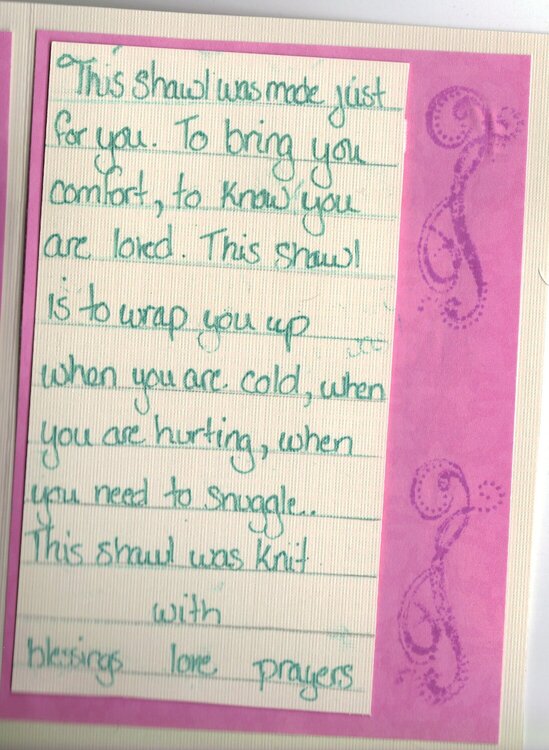 This shawl was made just
for you. To bring you
comfort, to know you
are loved. This shawl
is to wrap you up
when you are cold, when
you are hurting, when
you need to snuggle..
This shawl was knit
with
blessings love prayers